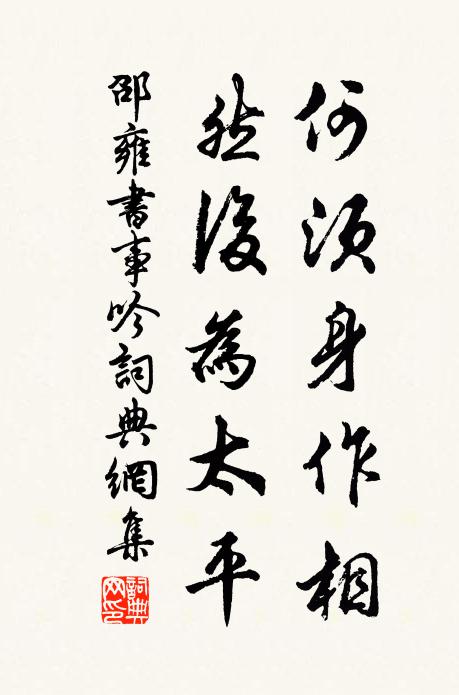 何須身作相
然後為太平
邵雍書事吟詞典網集
詞典網印